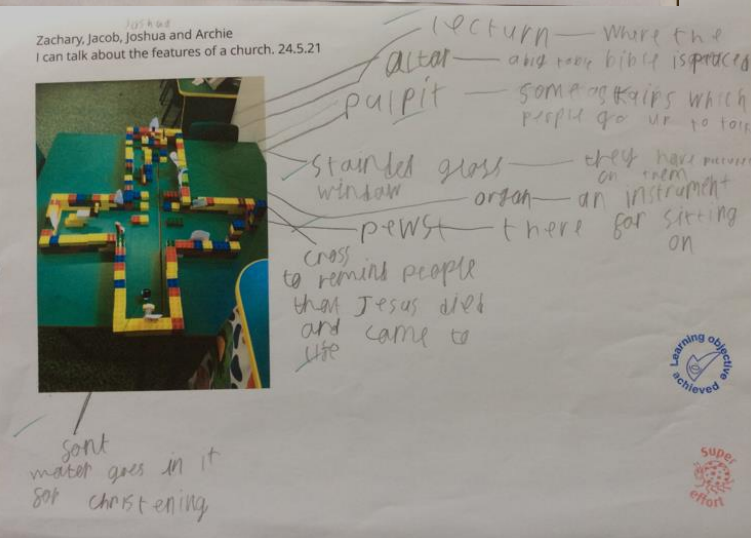 Joshua
Zachary, Jacob, Joshua and Archie
I can talk about the features of a church. 24.5.21
lecturn — where the
bible is placed
altar — a big table
pulpit — some stairs which
people go up to
stainded glass — they have
window on them
organ — an instrument
pews — there for sitting
on
cross
to remind people
that Jesus died
and came to
life
font
water goes in it
for christening
Learning objective
achieved
Super
effort